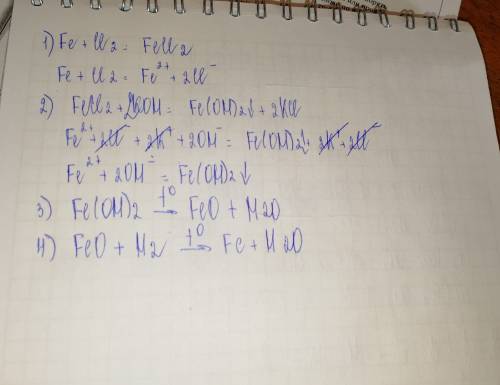 1) Fe + Cl2 = FeCl2
Fe + Cl2 = Fe²⁺ + 2Cl⁻
2) FeCl2 + 2KOH = Fe(OH)2↓ + 2KCl
Fe²⁺ + 2Cl⁻ + 2K⁺ + 2OH⁻ = Fe(OH)2↓ + 2K⁺ + 2Cl⁻
Fe²⁺ + 2OH⁻ = Fe(OH)2↓
3) Fe(OH)2 t° → FeO + H2O
4) FeO + H2 t° → Fe + H2O